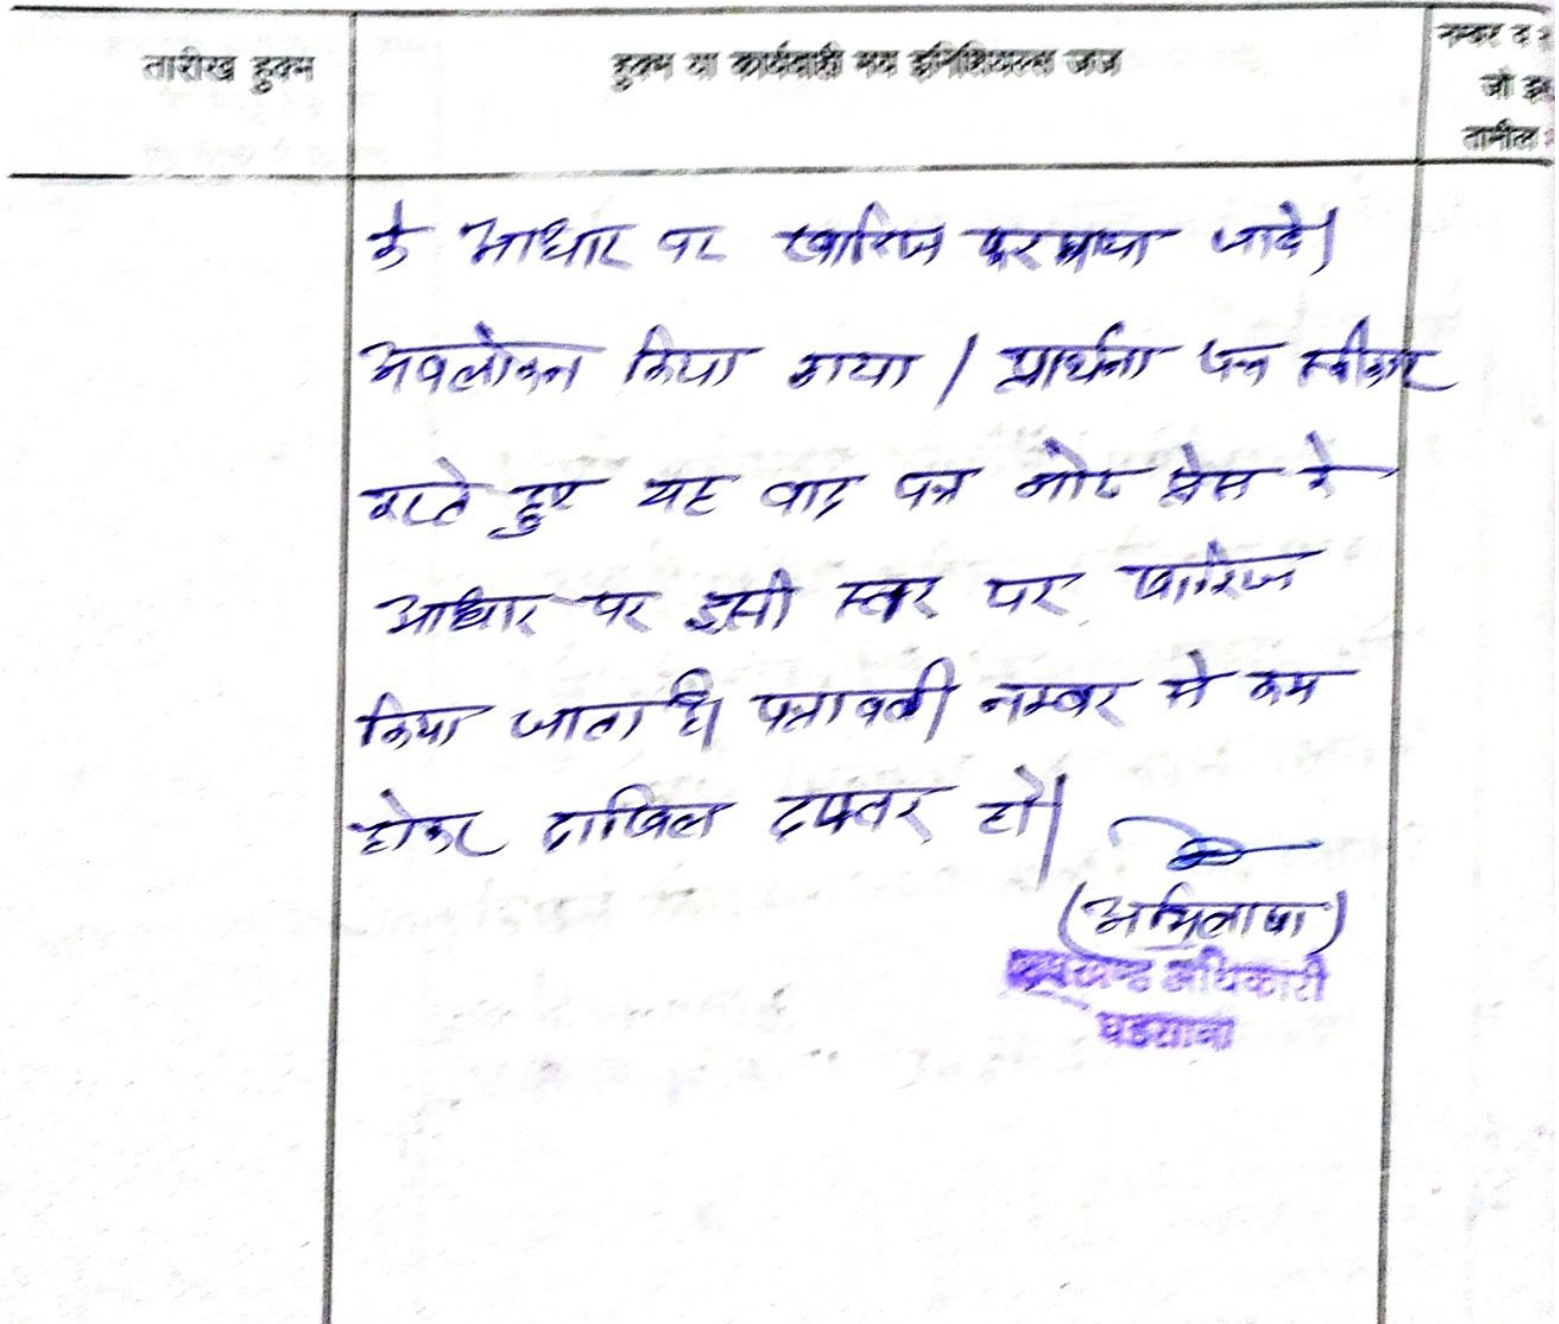 तारीख हुक्म
हुक्म या कार्यवाही मय इनिशियल्स जज
नम्बर व
जो इस
तामील
के आधार पर खारिज फरमाया जावे।
अवलोकन किया गया। प्रार्थना पत्र स्वीकार
करते हुए यह वाद पत्र नोट प्रेस के
आधार पर इसी स्तर पर खारिज
किया जाता है। पत्रावली नम्बर से कम
होकर दाखिल दफ्तर हो।
(अभिलाषा)
उपखण्ड अधिकारी
घडसाना